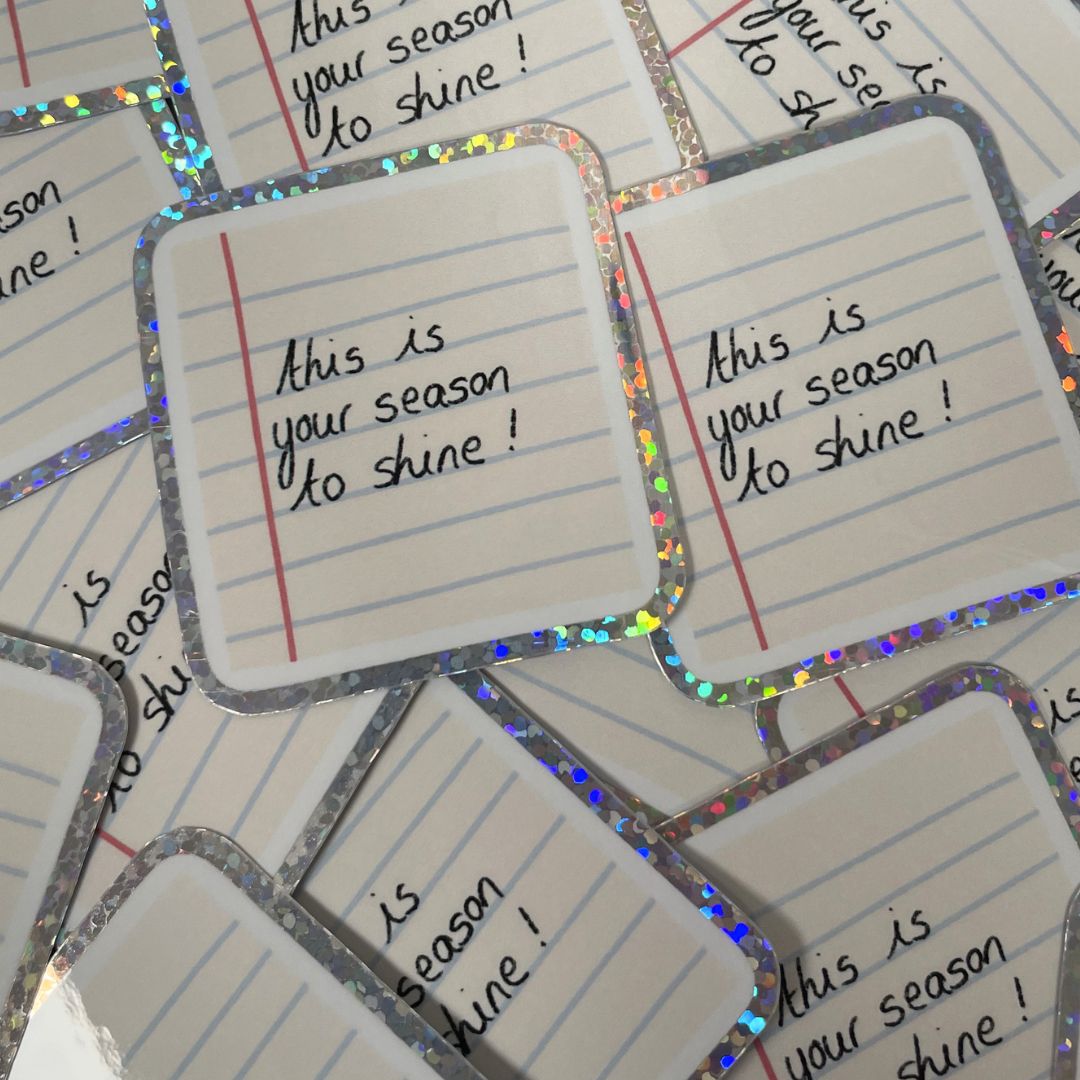 this is
your season
to shine !
this is
your se
to sh
ason
ine !
this is
your season
to shine !
this is
your season
to shine !
is
season
to shi
is
season
shine !
this is
your season
shine !
is